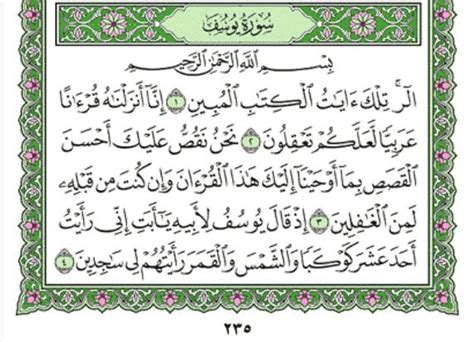 سُورَةُ يُوسُفَ
بِسْمِ اللَّهِ الرَّحْمَٰنِ الرَّحِيمِ
الٓر ۚ تِلْكَ ءَايَٰتُ الْكِتَٰبِ الْمُبِينِ ١ إِنَّآ أَنزَلْنَٰهُ قُرْءَٰنًا
عَرَبِيًّا لَّعَلَّكُمْ تَعْقِلُونَ ٢ نَحْنُ نَقُصُّ عَلَيْكَ أَحْسَنَ
الْقَصَصِ بِمَآ أَوْحَيْنَآ إِلَيْكَ هَٰذَا الْقُرْءَانَ وَإِن كُنتَ مِن قَبْلِهِۦ
لَمِنَ الْغَٰفِلِينَ ٣ إِذْ قَالَ يُوسُفُ لِأَبِيهِ يَٰٓأَبَتِ إِنِّي رَأَيْتُ
أَحَدَ عَشَرَ كَوْكَبًا وَالشَّمْسَ وَالْقَمَرَ رَأَيْتُهُمْ لِي سَٰجِدِينَ ٤
٢٣٥